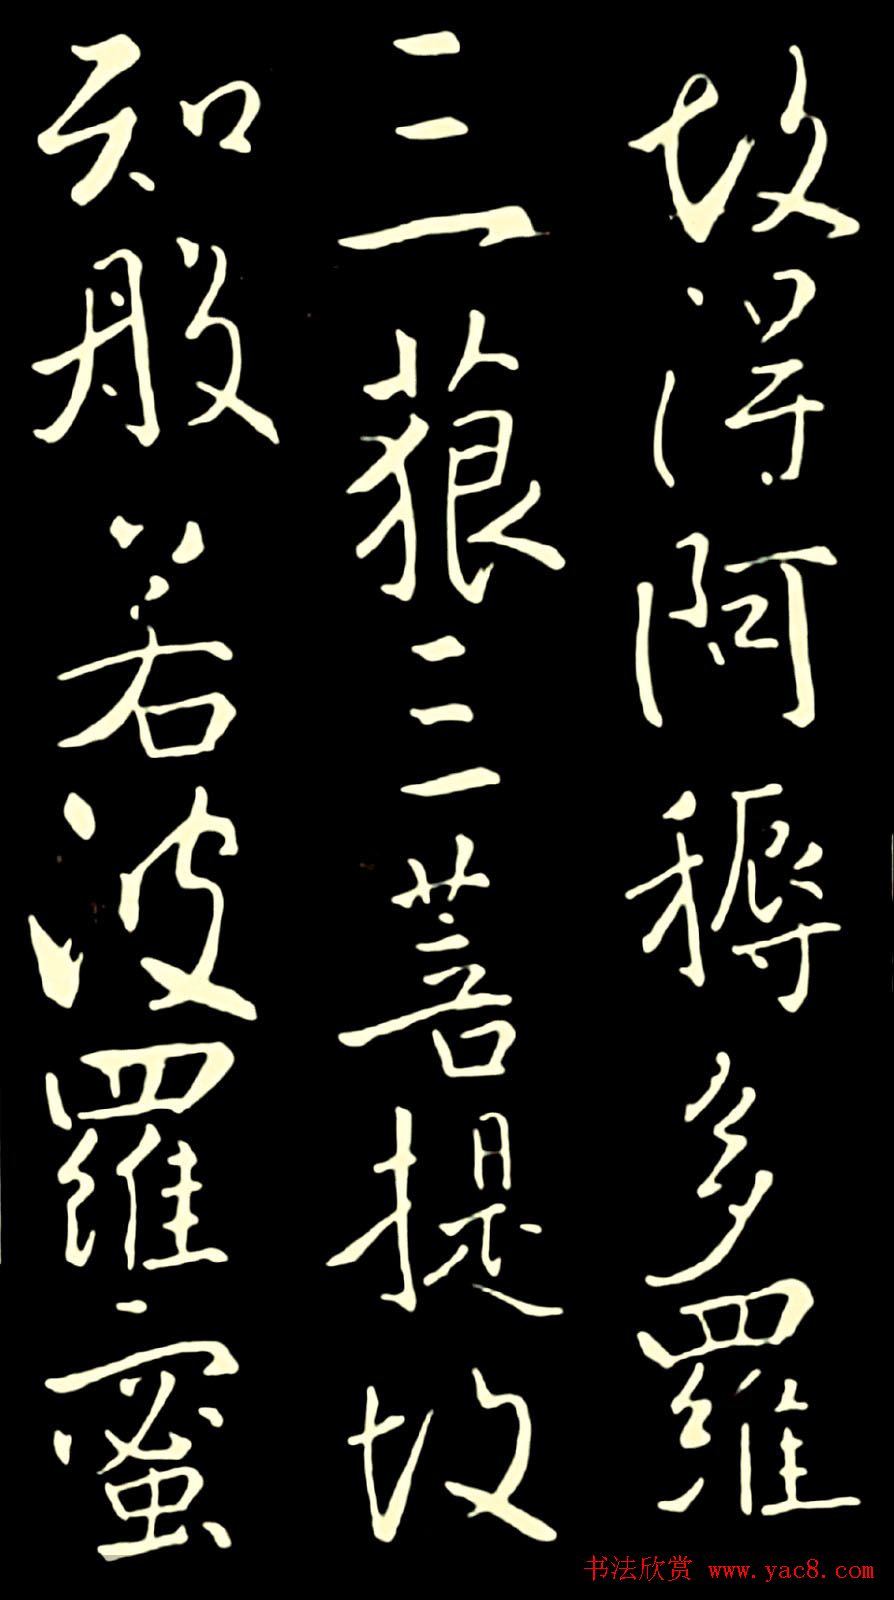 故得阿耨多羅
三藐三菩提故
知般若波羅蜜
书法欣赏 www.yac8.com